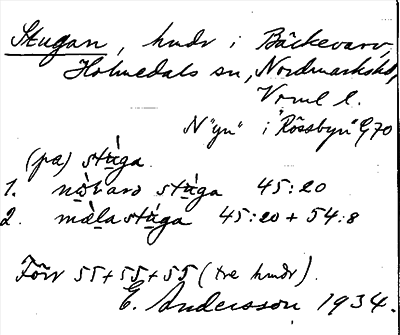 Stugan, hmdr i Bäckevarv,
Holmedals sn, Nordmarks hd,
Vrml l.
N"yn" i "Rössbyn" G70
(pa) stùga.
1. stùga 45:20
2. mà̀la stùga 45:20 + 54:8
Förr 55+55+55 (tre hmdr).
E. Andersson 1934.